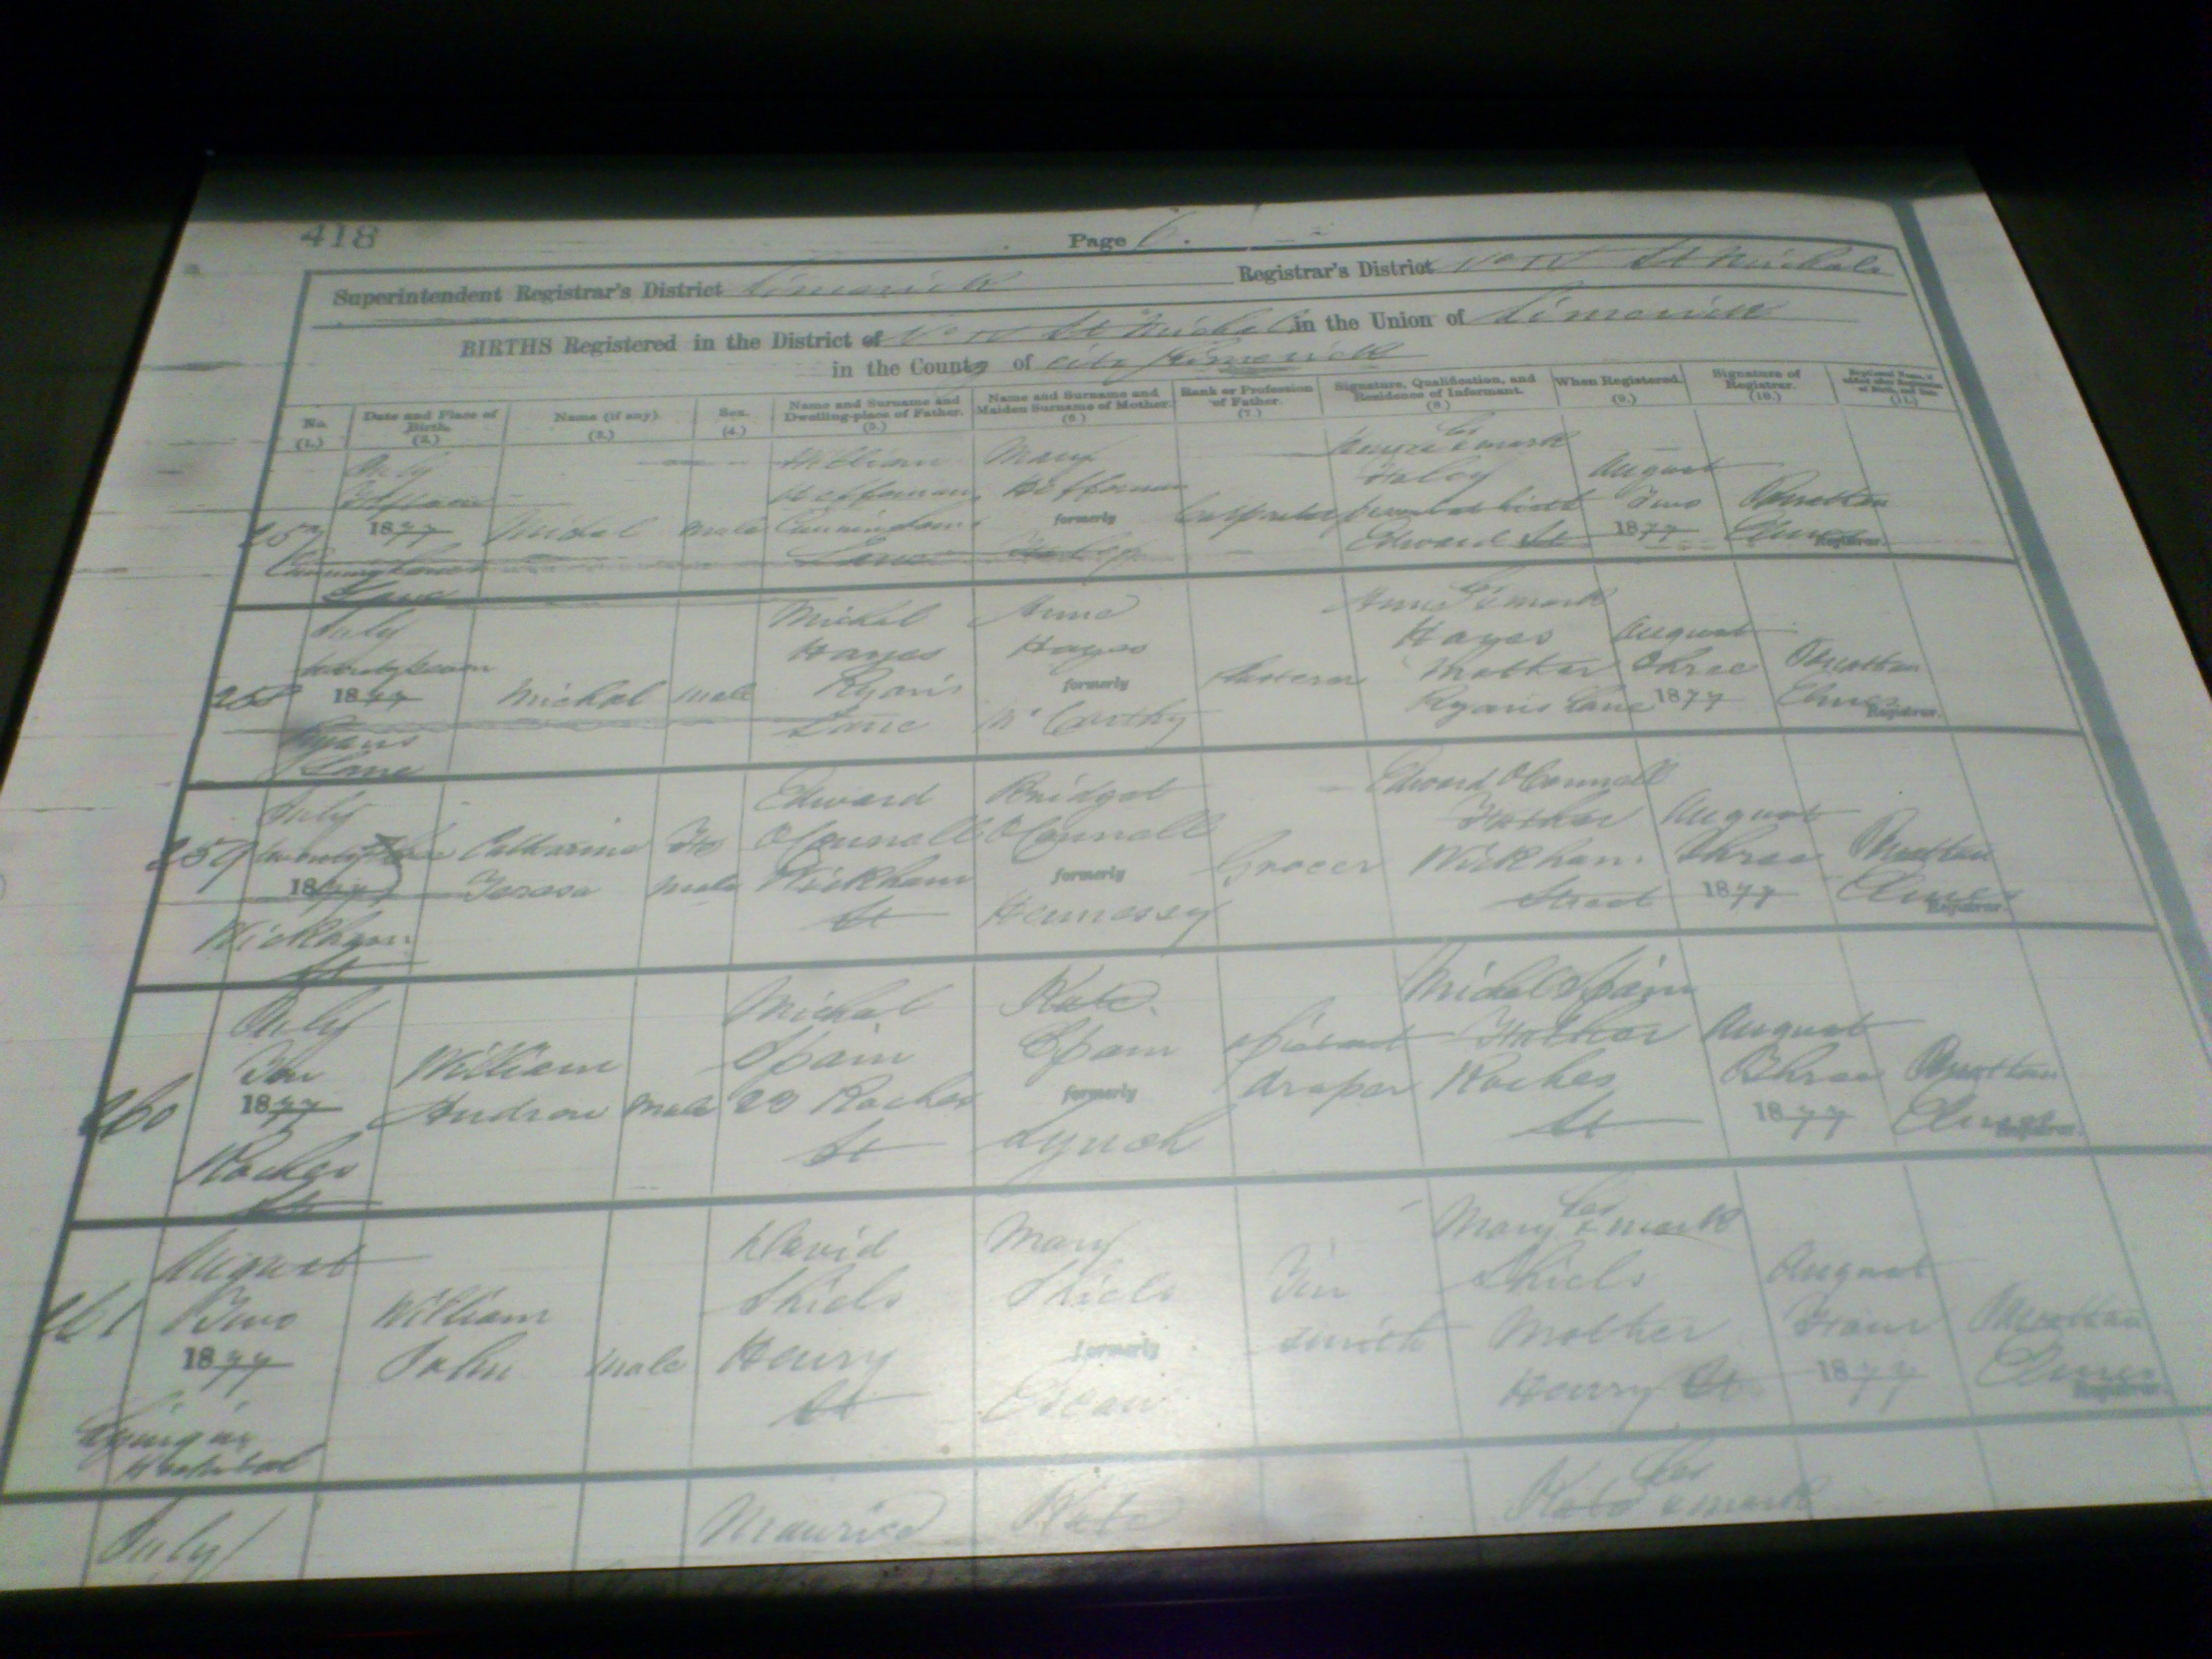 418
Page 6.
Superintendent Registrar's District Limerick Registrar's District St Michaels
BIRTHS Registered in the District of St Michaels in the Union of Limerick
in the County of city Limerick
No. Date and Place of Birth. Name (if any). Sex. Name and Surname and Dwelling-place of Father. Name and Surname and Maiden Surname of Mother. Rank or Profession of Father. Signature, Qualification, and Residence of Informant. When Registered. Signature of Registrar.
(1.) (2.) (3.) (4.) (5.) (6.) (7.) (8.) (9.) (10.) (11.)
July William Mary her x mark
Heffernan Heffernan Haley August
257 1877 Michal Male Cunninghams formerly Carpenter present at birth Two
Lane Haley Edward St 1877 Registrar.
Lane
July Michal Anne Anne her x mark
twentyseven Hayes Hayes Hayes August
258 1877 Michal Male Ryans formerly Mother Three
Ryans Lane Lane McCarthy Ryans Lane 1877 Registrar.
July Edward Bridget Edward O'Connell
259 Catharine Fe O'Connell O'Connell Father August
1877 Teresa male Wickham formerly Grocer Wickham Three
Wickham St St Hennessy Street 1877 Registrar.
July Michal Kate Michal Spain
Ten William Spain Spain Father August
260 1877 Andrew Male 23 Roches formerly draper Roches Three
Roches St St Lynch St 1877 Registrar.
August David Mary Mary her x mark
261 Two William Shiels Shiels Tin Shiels August
1877 John Male Henry formerly smith Mother Four
Lying in Hospital St Henry St 1877 Registrar.
July Maurice Kate Kate her x mark